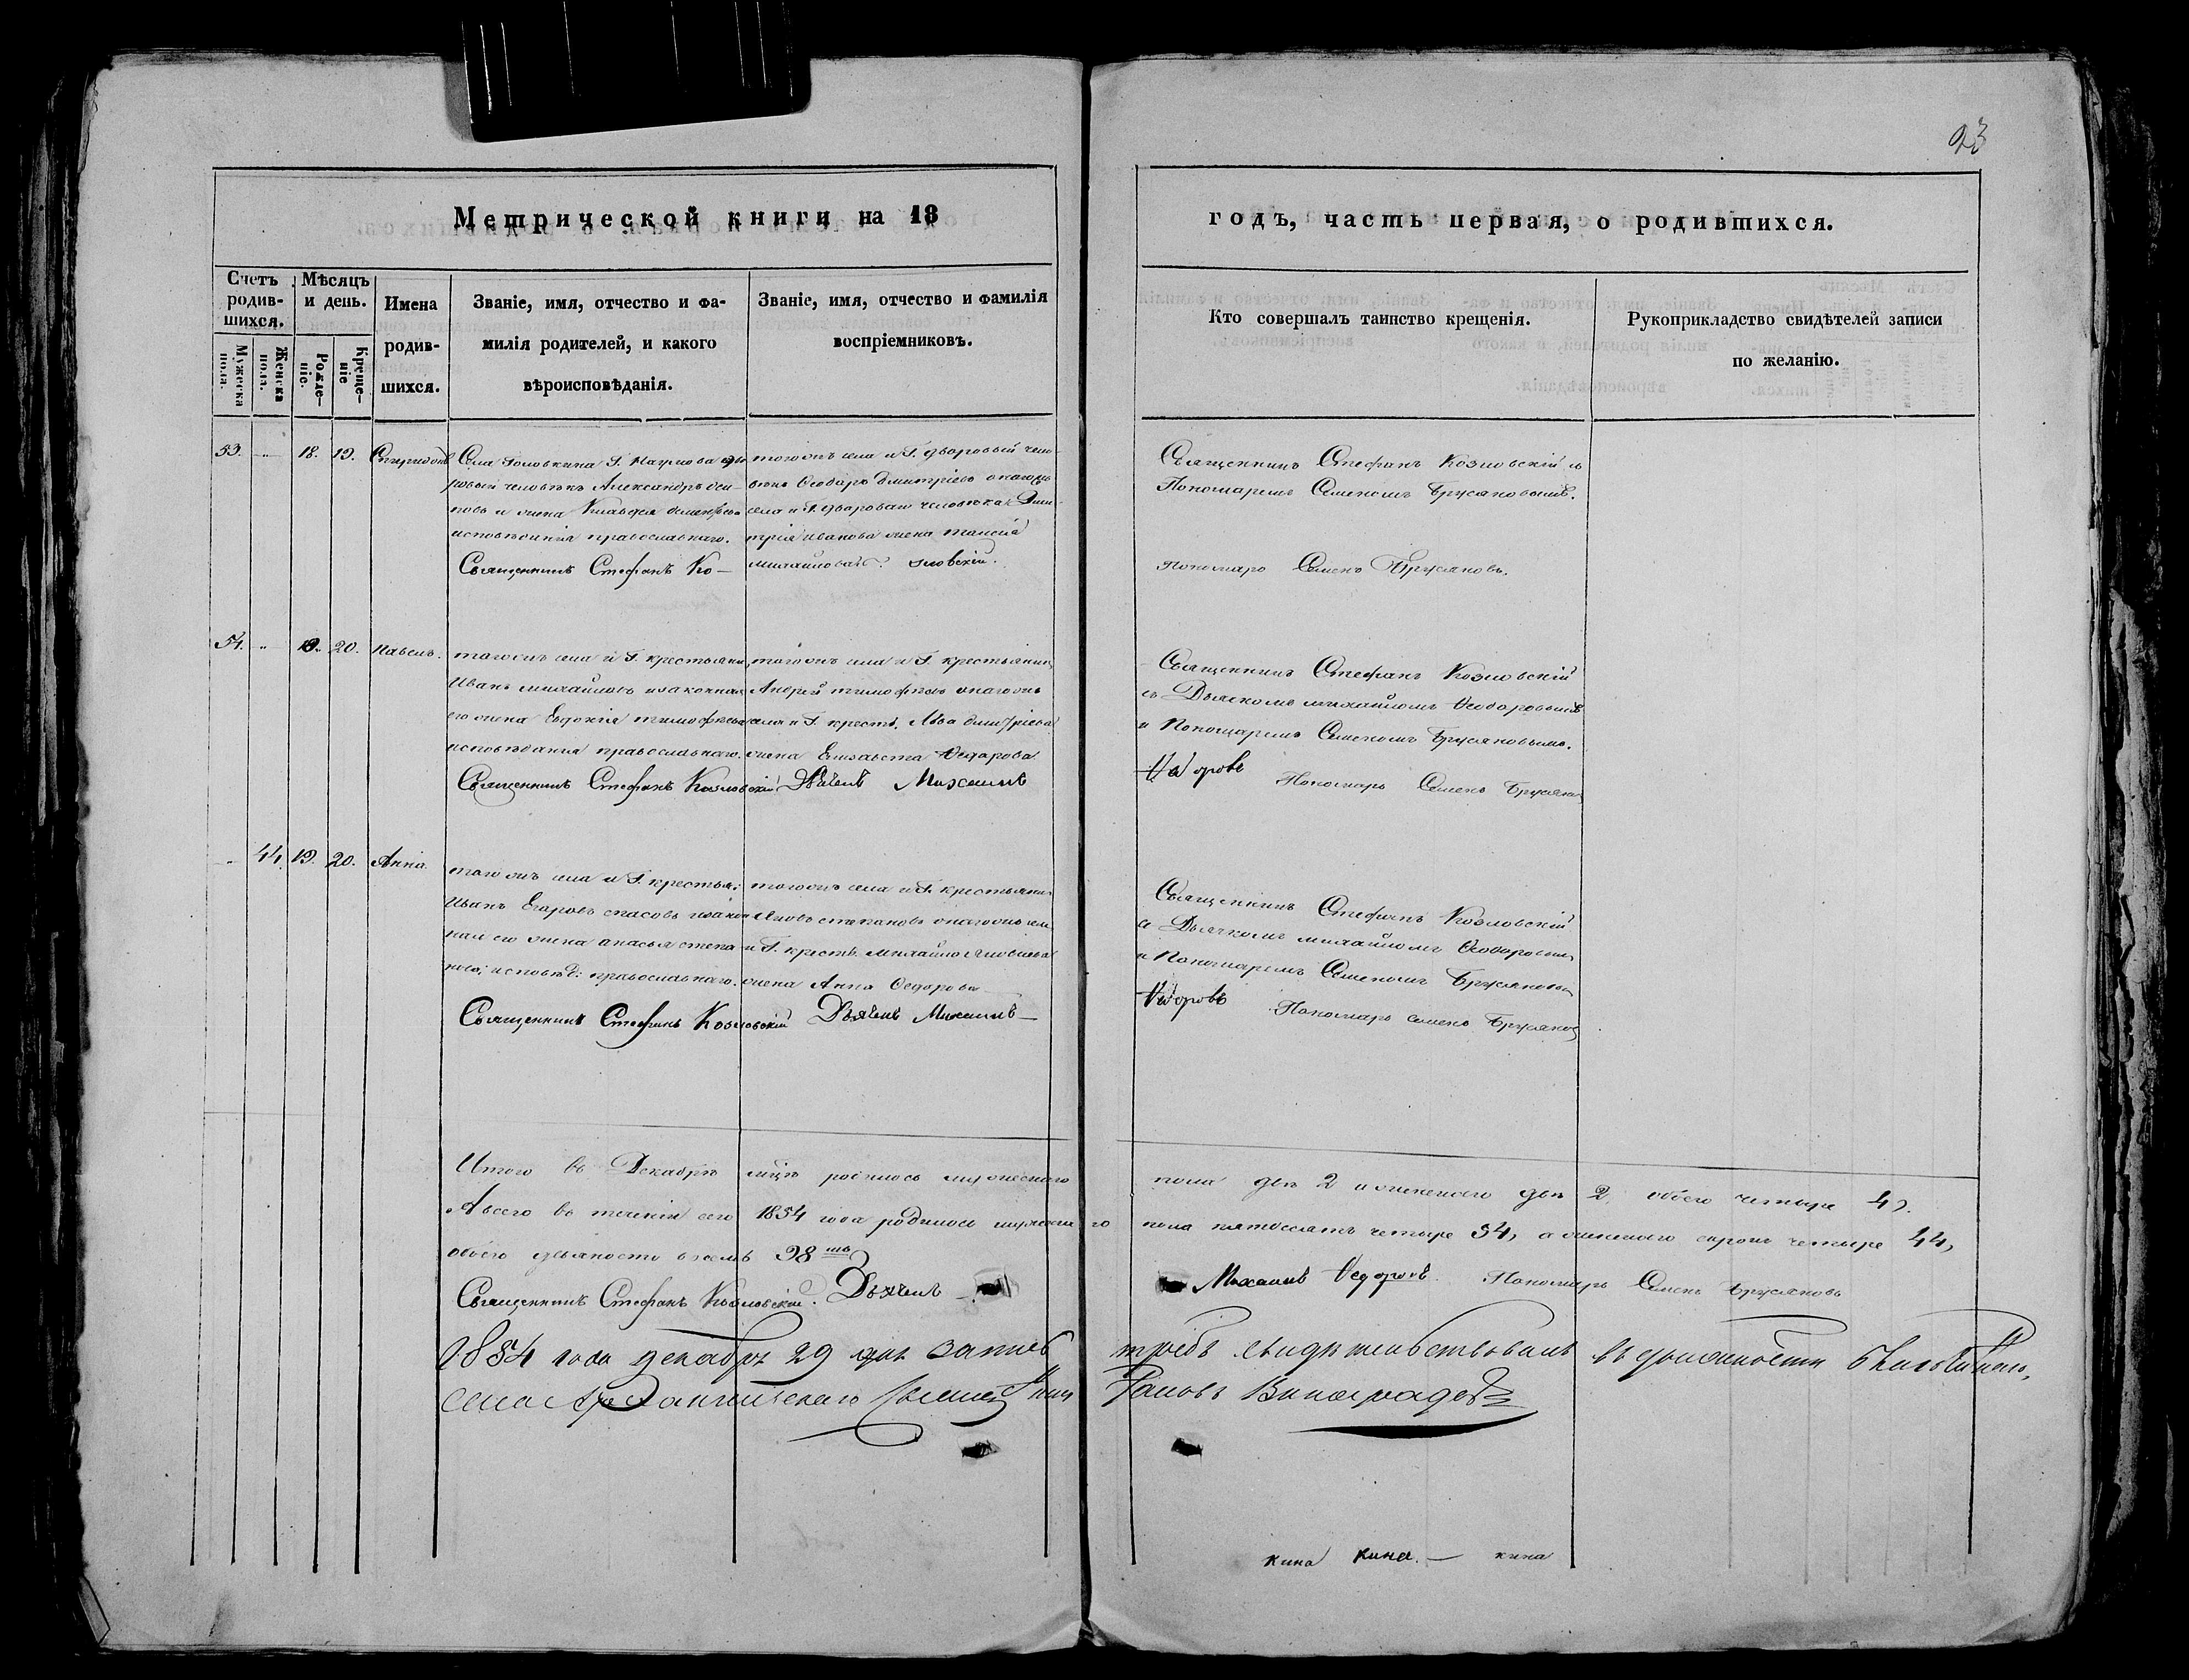 93
Метрической книги на 18
годъ, часть первая, о родившихся.
Счетъ родив-шихся.
Мѣсяцъ и день.
Имена родив-шихся.
Званіе, имя, отчество и фа-
милія родителей, и какого
вѣроисповѣданія.
Званіе, имя, отчество и фамилія
воспріемниковъ.
Кто совершалъ таинство крещенія.
Рукоприкладство свидѣтелей записи
по желанію.
Мужеска пола.
Женска пола.
Рожде-ніе.
Креще-ніе
53. „ 18. 19. Спиридонъ
Села Головкина Г. Наумова дво
ровый человѣкъ Александръ Оси-
повъ и жена
исповѣданія православнаго.
Священникъ Стефанъ Ко-
тогожъ села и Г. дворовый чело-
вѣкъ Ѳеодоръ Дмитріевъ онагожъ
села и Г. двороваго человѣка Дми-
трія Иванова жена
Михайлова. зловскій.
Священникъ Стефанъ Козловскій съ
Пономаремъ Семеномъ Брусяновымъ.
Пономарь Семенъ Брусяновъ.
54. „ 19. 20. Павелъ.
тогожъ села и Г. крестьянинъ
Иванъ Михайловъ и законная
его жена Евдокія Тимофѣева
исповѣданія православнаго.
Священникъ Стефанъ Козловскій
тогожъ села и Г. крестьянинъ
Андрей Тимофѣевъ онагожъ
села и Г. крест. Льва Дмитріева
жена Елизавета Ѳедорова
Дьячекъ Михаилъ
Священникъ Стефанъ Козловскій
съ Дьячкомъ Михаиломъ Ѳеодоровымъ
и Пономаремъ Семеномъ Брусяновымъ.
Ѳедоровъ Пономарь Семенъ Брусяновъ
„ 44. 19. 20. Анна.
тогожъ села и Г. крестья:
Иванъ Егоровъ Спасовъ и закон
ная его жена Анасья Степа
нова; исповѣд: православнаго.
Священникъ Стефанъ Козловскій
тогожъ села и Г. крестьянинъ
Яковъ Степановъ онагожъ села
и Г. крест. Михайло Яковлева
жена Анна Ѳедорова
Дьячекъ Михаилъ
Священникъ Стефанъ Козловскій
съ Дьячкомъ Михаиломъ Ѳеодоровымъ
и Пономаремъ Семеномъ Брусяновымъ
Ѳедоровъ Пономарь Семенъ Брусяновъ
Итого въ Декабрѣ мцѣ родилось мужескаго пола два 2 и женскаго два 2 обоего четыре 4).
А всего въ теченіи сего 1854 года родилось мужескаго пола пятдесятъ четыре 54, а женскаго сорокъ четыре 44,
обоего девяносто восемь 98
Священникъ Стефанъ Козловскій. Дьячекъ Михаилъ Ѳедоровъ. Пономарь Семенъ Брусяновъ
1854 года декабря 29 дня запись требъ свидѣтельствовалъ въ должности Благочиннаго,
села Архангельскаго Священникъ Виноградовъ
кина кина. — кина